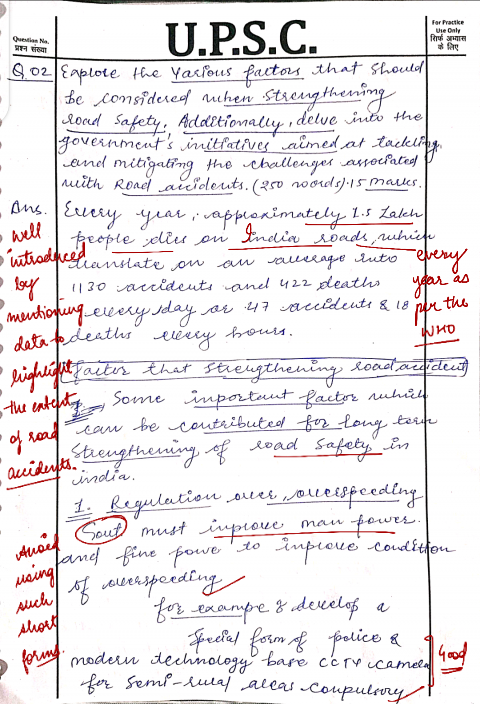 Question No.
प्रश्न संख्या
U.P.S.C.
For Practice
Use Only
सिर्फ अभ्यास
के लिए
Q.02 Explore the various factors that should
be considered when strengthening
road safety. Additionally, delve into the
government's initiatives aimed at tackling
and mitigating the challenges associated
with Road accidents. (250 words). 15 marks.
Ans. Every year, approximately 1.5 Lakh
people dies on India roads, which
translate on an average into
1130 accidents and 422 deaths
every day or 47 accidents & 18
deaths every hours.
Well
introduced
by
mentioning
data to
highlight
the extent
of road
accidents.
every
year as
per the
WHO
Factor that strengthening road accident
Some inportant factor which
can be contributed for long term
strengthening of road safety in
india.
1. Regulation over, overspeeding
Govt must inprove man power.
and fine power to inprove condition
of overspeeding
Avoid
using
such
short
forms
for example & develop a
Special form of police &
modern technology base CCTV camera
for Semi-rural areas conpulsory
Good